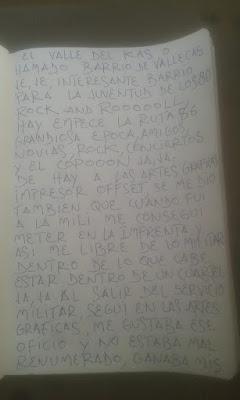 EL VALLE DEL KAS O
LLAMADO BARRIO DE VALLECAS
JE, JE, INTERESANTE BARRIO
PARA LA JUVENTUD DE LOS 80
ROCK AND ROOOOOLL,
HAY EMPECE LA RUTA 66
GRANDIOSA EPOCA, AMIGOS,
NOVIAS, ROCK, CONCIERTOS
Y EL COPOOON JA, JA.
DE HAY A LAS ARTES GRAFICAS,
IMPRESOR OFFSET, SE ME DIO
TAMBIEN QUE CUANDO FUI
A LA MILI ME CONSEGUI
METER EN LA IMPRENTA Y
ASI ME LIBRE DE LO MILITAR
DENTRO DE LO QUE CABE
ESTAR DENTRO DE UN CUARTEL
JA, JA AL SALIR DEL SERVICIO
MILITAR, SEGUI EN LAS ARTES
GRAFICAS, ME GUSTABA ESE
OFICIO Y NO ESTABA MAL
RENUMERADO, GANABA MIS